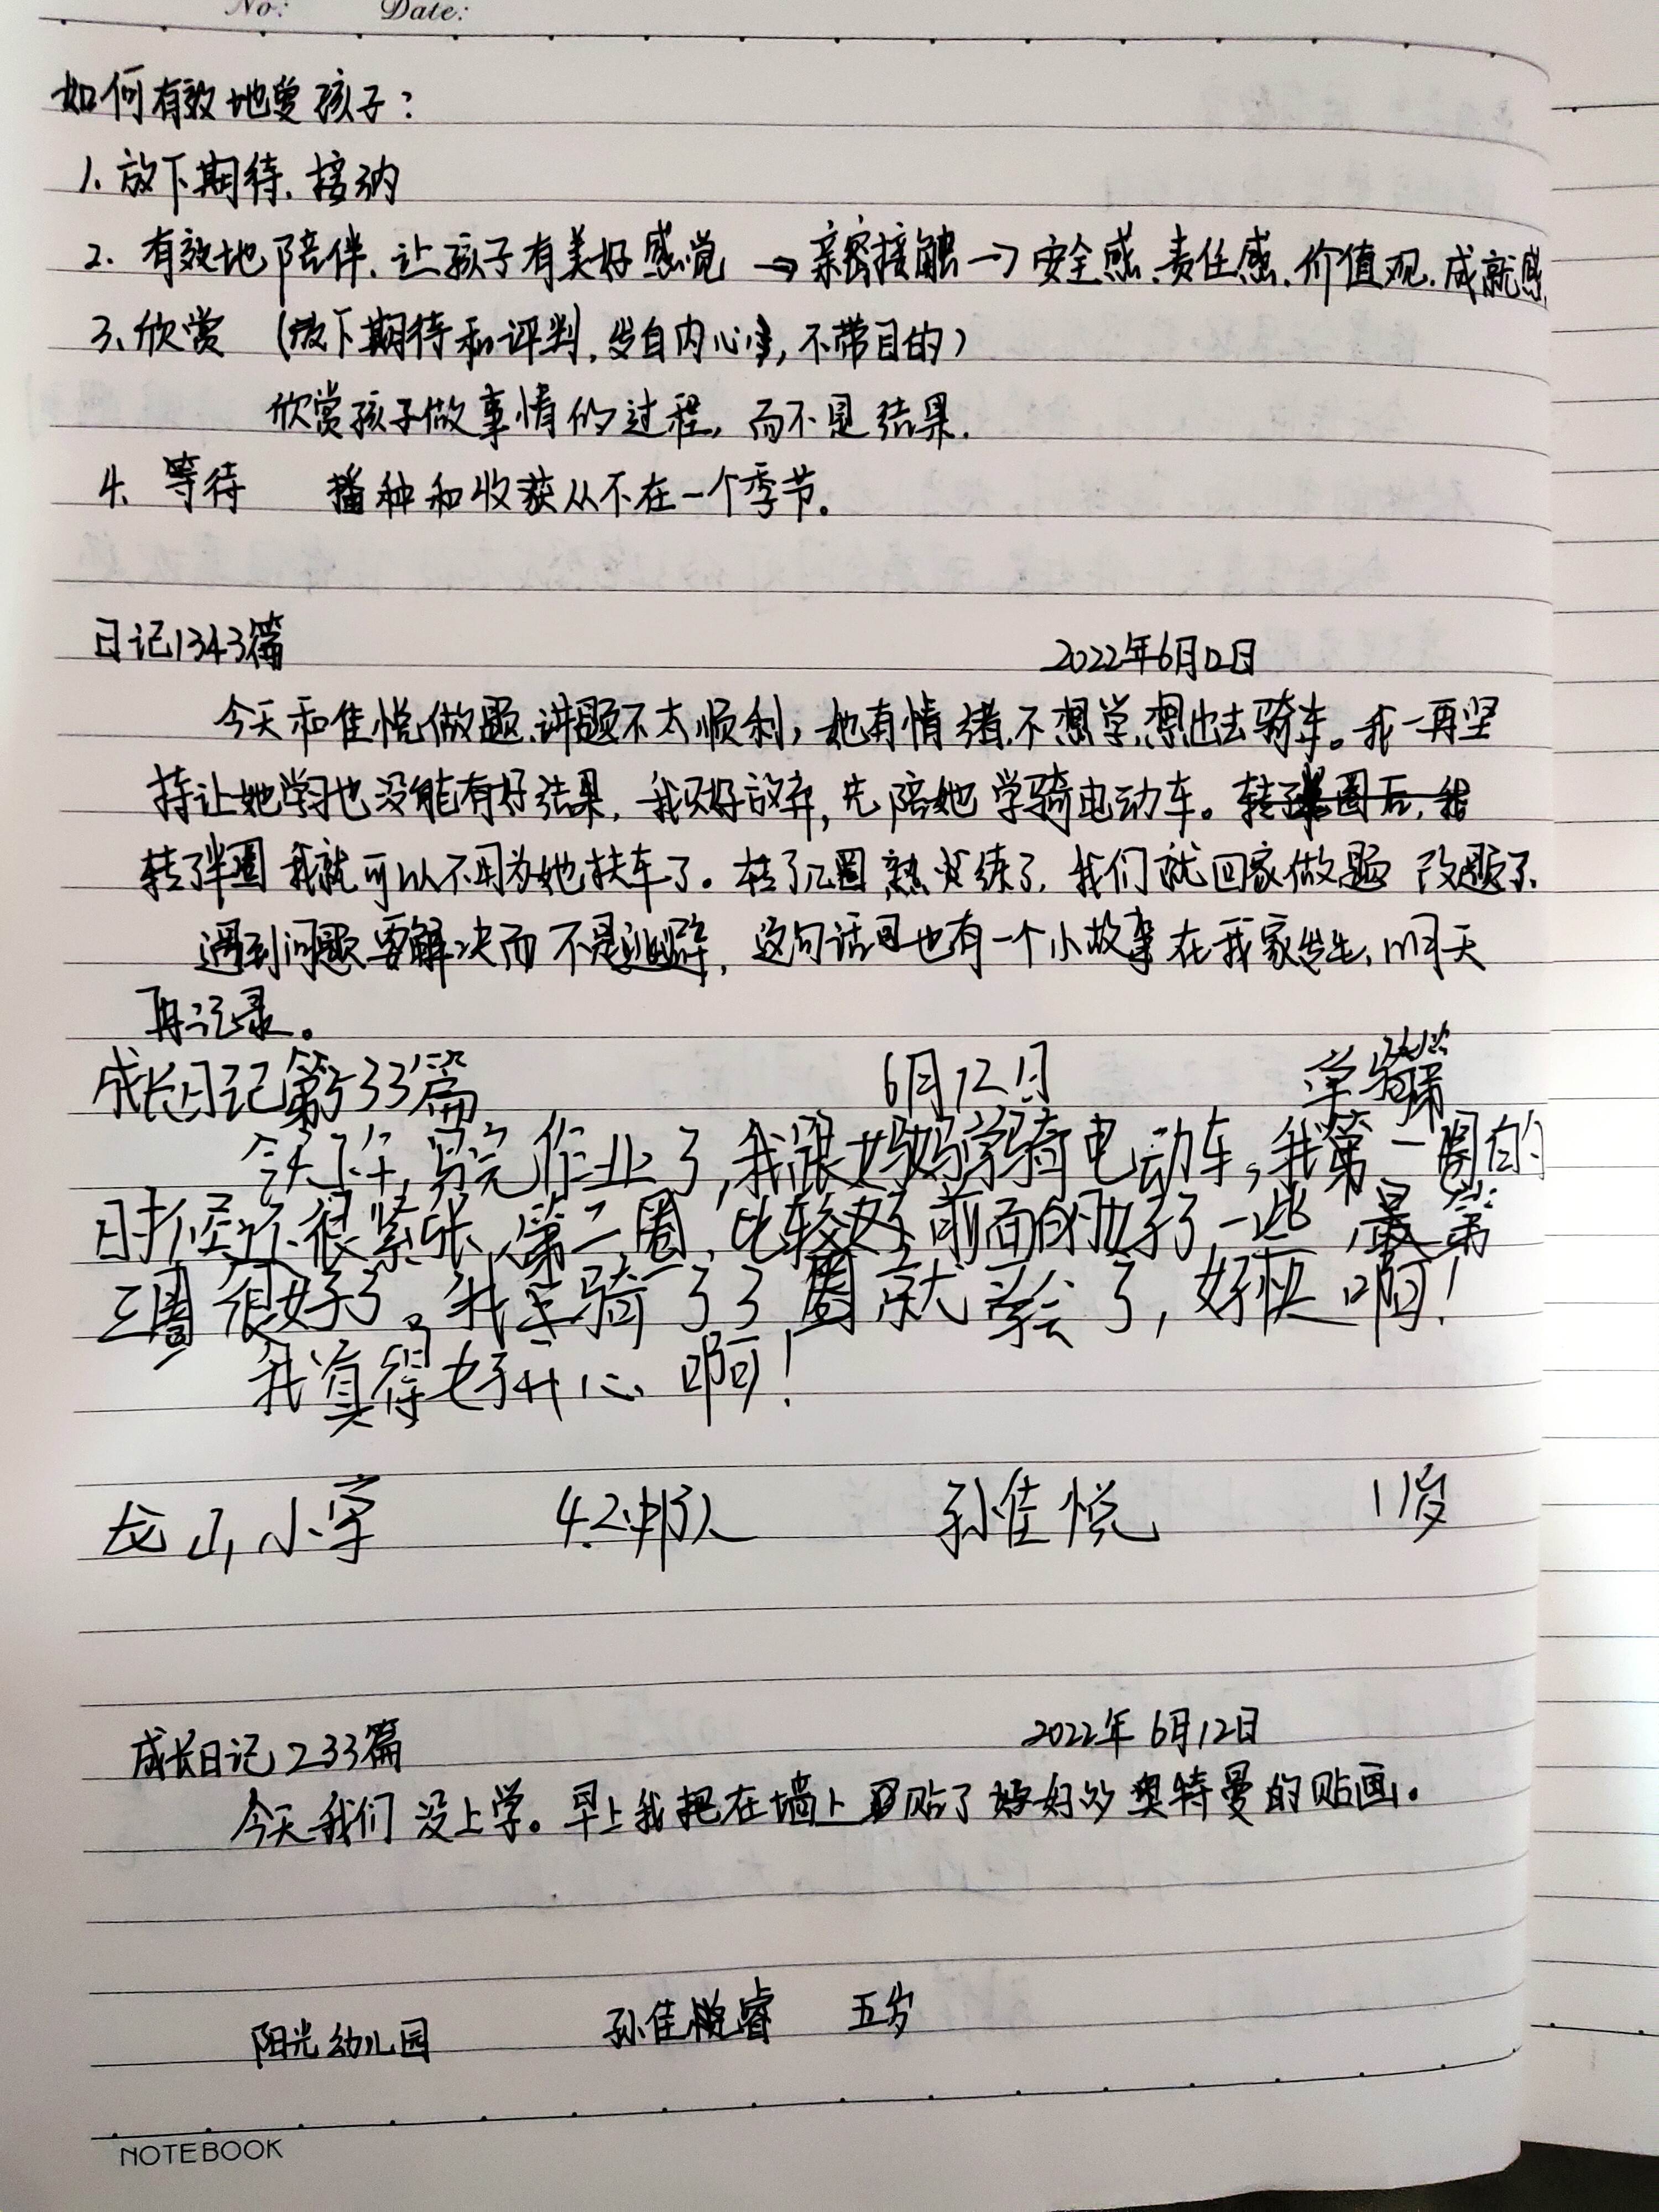 No: Date:
如何有效地爱孩子:
1. 放下期待、接纳
2. 有效地陪伴、让孩子有美好感觉 → 亲密接触 → 安全感、责任感、价值观、成就感
3、欣赏 (放下期待和评判,发自内心,不带目的)
欣赏孩子做事情的过程,而不是结果.
4、等待 播种和收获从不在一个季节。
日记1343篇 2022年6月12日
今天和佳悦做题、讲题不太顺利,她有情绪、不想学,想出去骑车。我一再坚
持让她学习也没能有好结果,我只好放弃,先陪她学骑电动车。
转了半圈 我就可以不用为她扶车了。转了几圈 熟练了,我们就回家做题 改题了.
遇到问题要解决而不是逃避,这句话也有一个小故事在我家发生,明天
再记录。
成长日记第533篇 6月12日
今天下午,写完作业了,我跟妈妈学骑电动车,我第一圈的
时候还很紧张,第二圈,比较前面的好了一些,第
三圈很好了。我骑了3圈就学会了,好快啊!
我真得好开心啊!
龙山小学 4.2中队 孙佳悦 11岁
成长日记233篇 2022年6月12日
今天我们没上学。早上我在墙上贴了好多奥特曼的贴画。
阳光幼儿园 孙佳睿 五岁
NOTEBOOK